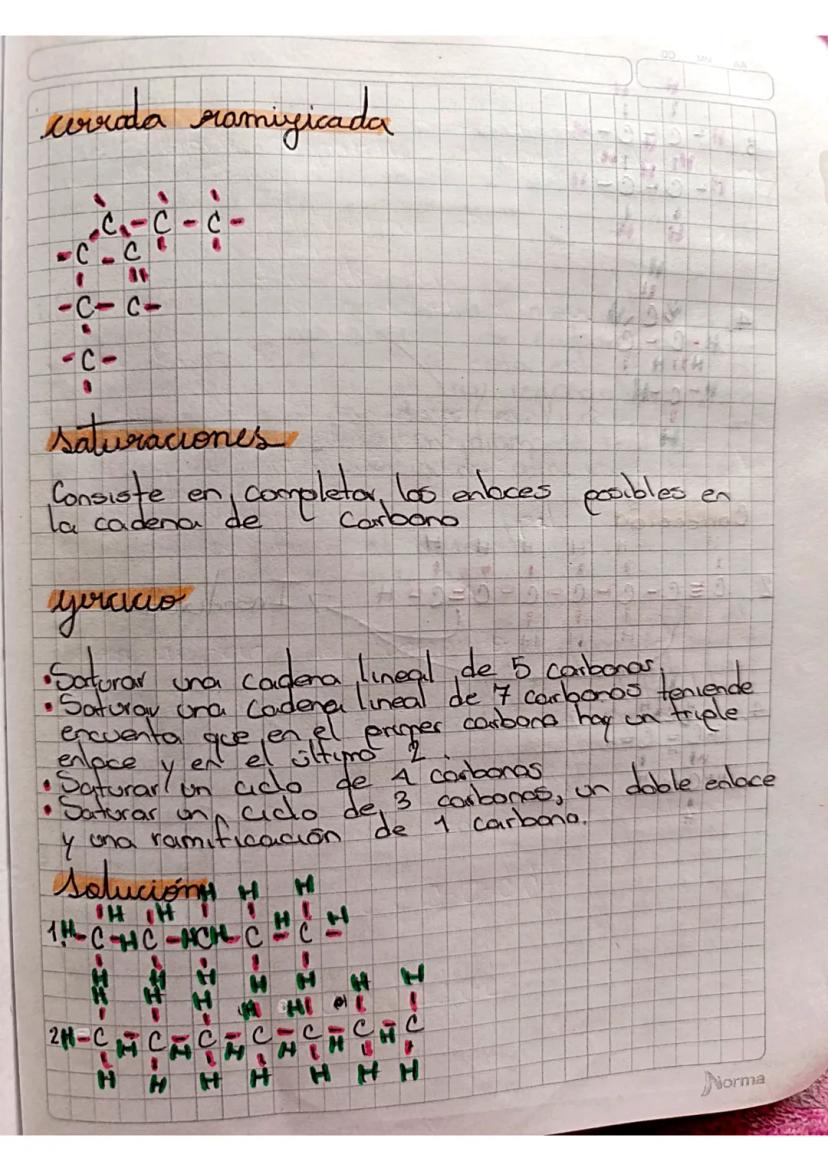 cerrada ramificada
C - C - C -
- C - C
- C - C -
- C -
saturaciones
Consiste en completar los enlaces posibles en
la cadena de Carbono
ejercicio
• Saturar una cadena lineal de 5 carbonos.
• Saturar una cadena lineal de 7 carbonos teniende
encuenta que en el primer carbono hay un triple
enlace y en el último 2.
• Saturar un ciclo de 4 carbonos
• Saturar un ciclo de 3 carbonos, un doble enlace
y una ramificación de 1 carbono.
Solución
H H H H H
1. H - C - H C - H C H - C - H C - H
H H H H H
H H H H H H H
2 H - C H C H C H C H C H C H C
H H H H H H H
Norma